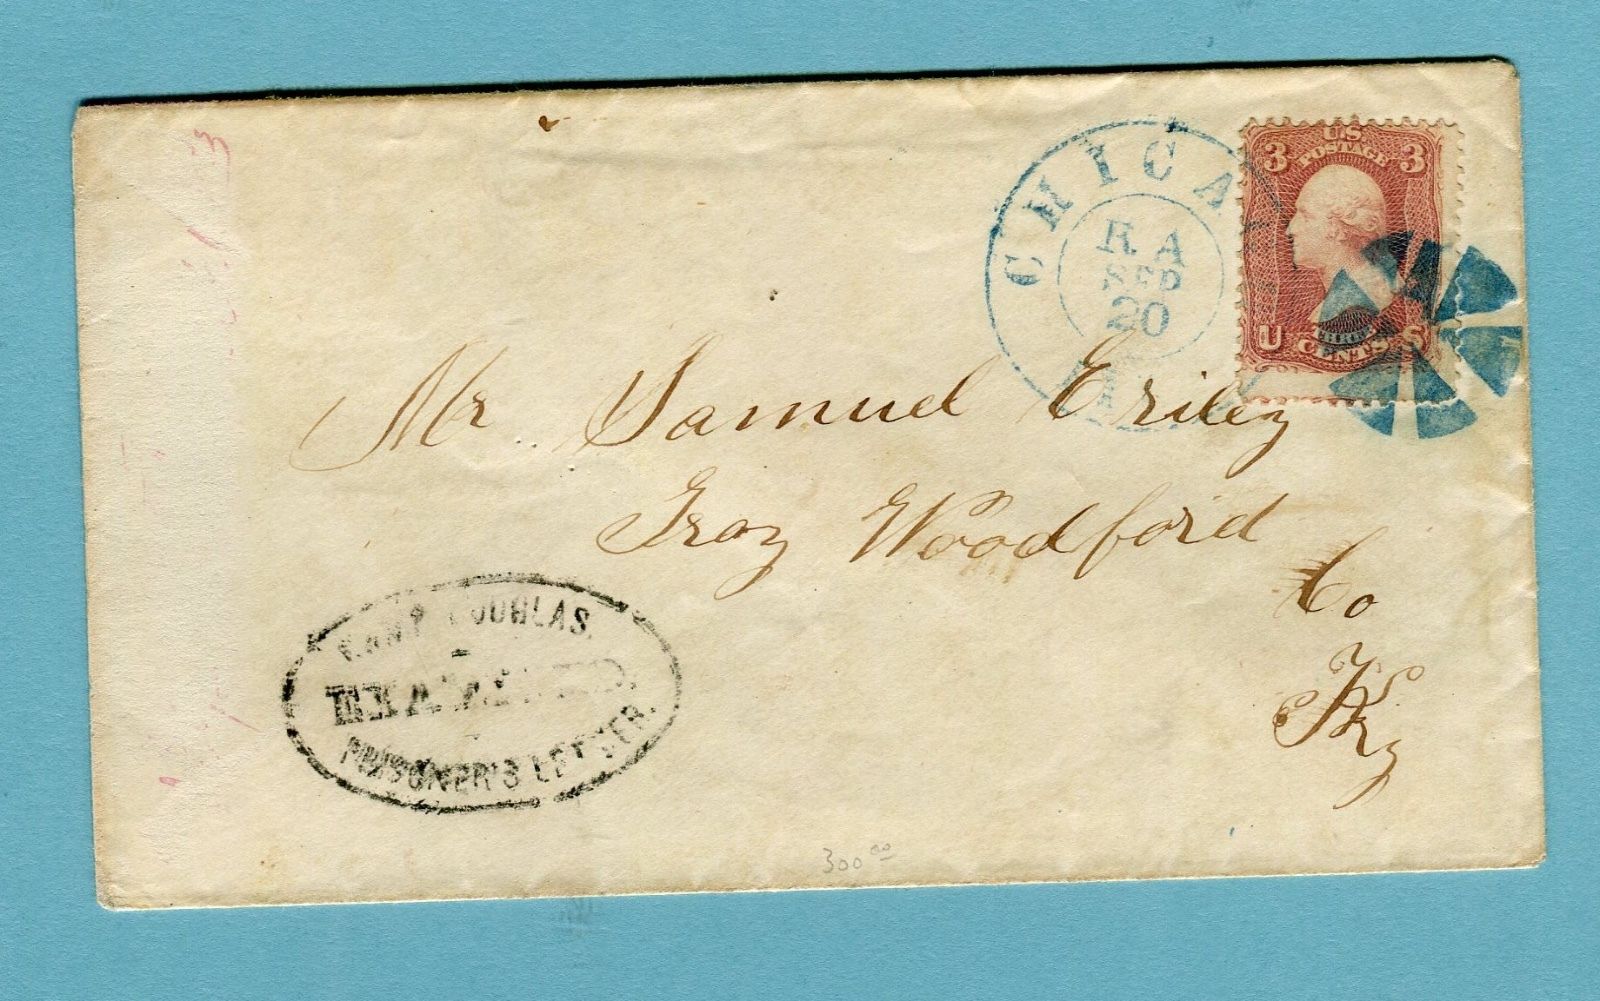 CHICA
R A
SEP
20
3 US 3
POSTAGE
U THREE S
CENTS
Mr Samuel Eriley
Troy Woodford
Co
Ky
CAMP DOUGLAS
EXAMINED
PRISONER'S LETTER.
300 00